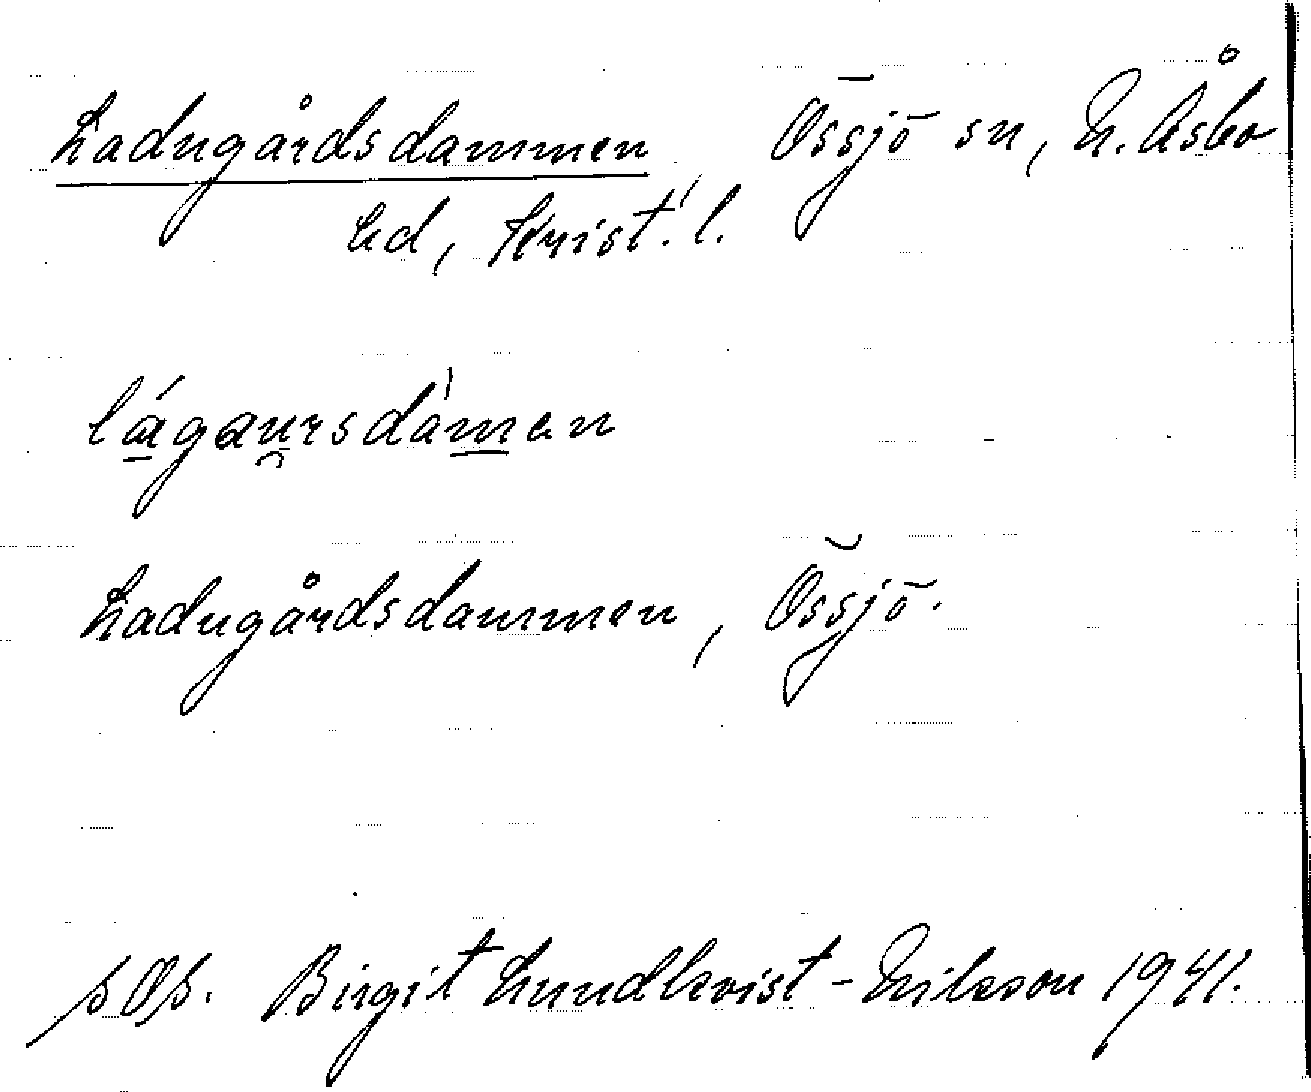 Ladugårdsdammen, Össjö sn, N. Åsbo
hd, Krist. l.
lágau̯rsdàmen
Ladugårdsdammen, Össjö.
Birgit Lundkvist-Nilsson 1941.